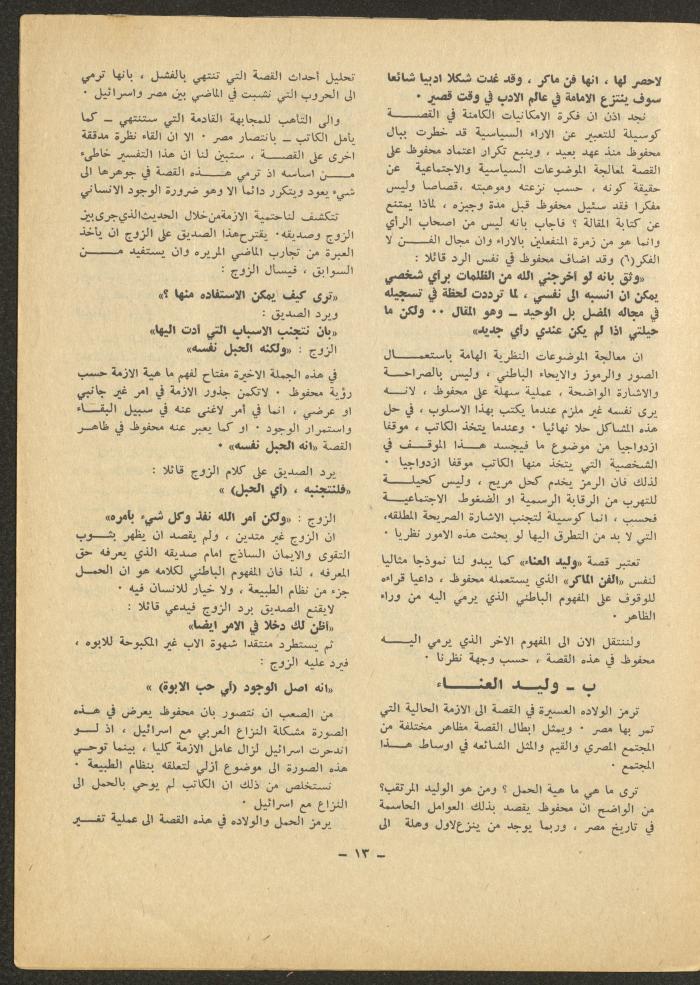 لاحصر لها ، انها فن ماكر ، وقد غدت شكلا ادبيا شائعا
سوف ينتزع الامامة في عالم الادب في وقت قصير ·
نجد اذن ان فكرة الامكانيات الكامنة في القصــــة
كوسيلة للتعبير عن الاراء السياسية قد خطرت ببال
محفوظ منذ عهد بعيد ، وينبع تكرار اعتماد محفوظ على
القصة لمعالجة الموضوعات السياسية والاجتماعية عن
حقيقة كونه ، حسب نزعته وموهبته ،قصاصا وليس
مفكرا فقد سئيل محفوظ قبل مدة وجيزه ، لماذا يمتنع
عن كتابة المقالة ؟ فاجاب بانه ليس من اصحاب الرأي
وانما هو من زمرة المنفعلين بالاراء وان مجال الفــــن لا
الفكر(٦) وقد اضاف محفوظ في نفس الرد قائلا :
«وثق بانه لو أخرجني الله من الظلمات برأي شخصي
يمكن ان انسبه الى نفسي ، لما ترددت لحظة في تسجيله
في مجاله المفضل بل الوحيد ــ وهو المقال ·· ولكن ما
حيلتي اذا لم يكن عندي رأي جديد»
ان معالجة الموضوعات النظرية الهامة باستعمـــال
الصور والرموز والايحاء الباطني ، وليس بالصراحـة
والاشارة الواضحة ، عملية سهلة على محفوظ ، لانـــه
يرى نفسه غير ملزم عندما يكتب بهذا الاسلوب ، في حل
هذه المشاكل حلا نهائيا · وعندما يتخذ الكاتب ، موقفا
ازدواجيا من موضوع ما فيجسد هـــذا الموقـــف في
الشخصية التي يتخذ منها الكاتب موقفا ازدواجيا ·
لذلك فان الرمز يخدم كحل مريح ، وليس كحيلـــة
للتهرب من الرقابة الرسمية او الضغوط الاجتماعيـــة
فحسب ، انما كوسيلة لتجنب الاشارة الصريحة المطلقه،
التي لا بد من التطرق اليها لو بحثت هذه الامور نظريا ·
تعتبر قصة «وليد العناء» كما يبدو لنا نموذجا مثاليا
لنفس «الفن الماكر» الذي يستعمله محفوظ ، داعيا قراءه
للوقوف على المفهوم الباطني الذي يرمي اليه من وراء
الظاهر ·
ولننتقل الان الى المفهوم الاخر الذي يرمي اليـــه
محفوظ في هذه القصة ، حسب وجهة نظرنا ·
ب ــ وليــد العنــــاء
ترمز الولاده العسيرة في القصة الى الازمة الحالية التي
تمر بها مصر · ويمثل ابطال القصة مظاهر مختلفة من
المجتمع المصري والقيم والمثل الشائعه في اوساط هـــذا
المجتمع ·
ترى ما هي ما هية الحمل ؟ ومن هو الوليد المرتقب؟
من الواضح ان محفوظ يقصد بذلك العوامل الحاسمة
في تاريخ مصر ، وربما يوجد من ينزع لاول وهلة الى
تحليل أحداث القصة التي تنتهي بالفشل ، بانها ترمي
الى الحروب التي نشبت في الماضي بين مصر واسرائيل ·
والى التأهب للمجابهة القادمة التي ستنتهي ــ كما
يأمل الكاتب ــ بانتصار مصر · الا ان القاء نظرة مدققة
اخرى على القصـــة ، ستبين لنا ان هذا التفسير خاطىء
مـــن اساسه اذ ترمي هـــذه القصة في جوهرها الى
شيء يعود ويتكرر دائما الا وهو ضرورة الوجود الانساني
تتكشف لنا حتمية الازمة من خلال الحديث الذي جرى بين
الزوج وصديقه· يقترح هذا الصديق على الزوج ان يأخذ
العبرة من تجارب الماضي المريره وان يستفيد مـــن
السوابق ، فيسأل الزوج :
«ترى كيف يمكن الاستفاده منها ؟»
ويرد الصديق :
«بان نتجنب الاسباب التي أدت اليها»
الزوج : «ولكنه الحبل نفسه»
في هذه الجملة الاخيرة مفتاح لفهم ما هية الازمة حسب
رؤية محفوظ · لاتكمن جذور الازمة في امر غير جانبي
او عرضي ، انما في أمر لاغنى عنه في سبيل البقـــاء
واستمرار الوجود · او كما يعبر عنه محفوظ في ظاهـر
القصة «انه الحبل نفسه» ·
يرد الصديق على كلام الزوج قائلا :
«فلنتجنبه ، (أي الحبل) »
الزوج : «ولكن أمر الله نفذ وكل شيء بأمره»
ان الزوج غير متدين ، ولم يقصد ان يظهر بثـــوب
التقوى والايمان الساذج امام صديقه الذي يعرفه حق
المعرفه ، لذا فان المفهوم الباطني لكلامه هو ان الحمـل
جزء من نظام الطبيعة ، ولا خيار للانسان فيه ·
لايقنع الصديق برد الزوج فيدعي قائلا :
«أظن لك دخلا في الامر ايضا»
ثم يستطرد منتقدا شهوة الاب غير المكبوحة للابوه ،
فيرد عليه الزوج :
«انه اصل الوجود (أي حب الابوة) »
من الصعب ان نتصور بان محفوظ يعرض في هـــذه
الصورة مشكلة النزاع العربي مع اسرائيل ، اذ لـــو
اندحرت اسرائيل لزال عامل الازمة كليا ، بينما توحـي
هذه الصورة الى موضوع ازلي لتعلقه بنظام الطبيعة ·
نستخلص من ذلك ان الكاتب لم يوحي بالحمل الى
النزاع مع اسرائيل ·
يرمز الحمل والولاده في هذه القصة الى عملية تغــير
ــ ١٣ ــ